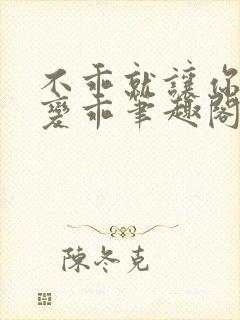 不乖就讓你
變乖筆趣閣
陳冬克